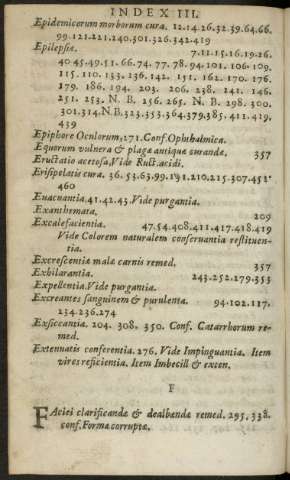 INDEX III.
Epidemicorum morborum cura. 12.14.26.32.39.64.66.
99.121.221.240.301.326.342.419
Epilepsiæ. 7.11.15.16.19.26.
40.45.49.51.66.74.77.78.94.101.106.109.
115.110.133.136.142.151.162.170.176.
179.186.194.203.206.238.241.146.
251.253.N.B.256.265.N.B.298.300.
301.314.N.B.323.353.364.379.385.411.419.
439
Epiphore Oculorum,271.Conf.Ophthalmica.
Equorum vulnera & plagæ antiquæ curandæ. 357
Eructatio acetosa,Vide Ruct.acidi.
Erisipelatis cura. 36.53.63.99.191.210.215.307.451.
460
Euacuantia.41.42.43.Vide purgantia.
Exanthemata. 209
Excalefacientia. 47.54.408.411.417.418.419
Vide Colorem naturalem conseruantia restituen-
tia.
Excrescentiæ malæ carnis remed. 357
Exhilarantia. 243.252.279.353
Expellentia.Vide purgantia.
Excreantes sanguinem & purulenta. 94.102.117.
234.236.274
Exsiccantia. 204. 308. 350. Conf. Catarrhorum re-
med.
Extenuatis conferentia. 276. Vide Impinguantia. Item
vires reficientia. Item Imbecill & exten.
F
FAciei clarificandæ & dealbandæ remed. 295.338.
conf.Formæ corruptæ.